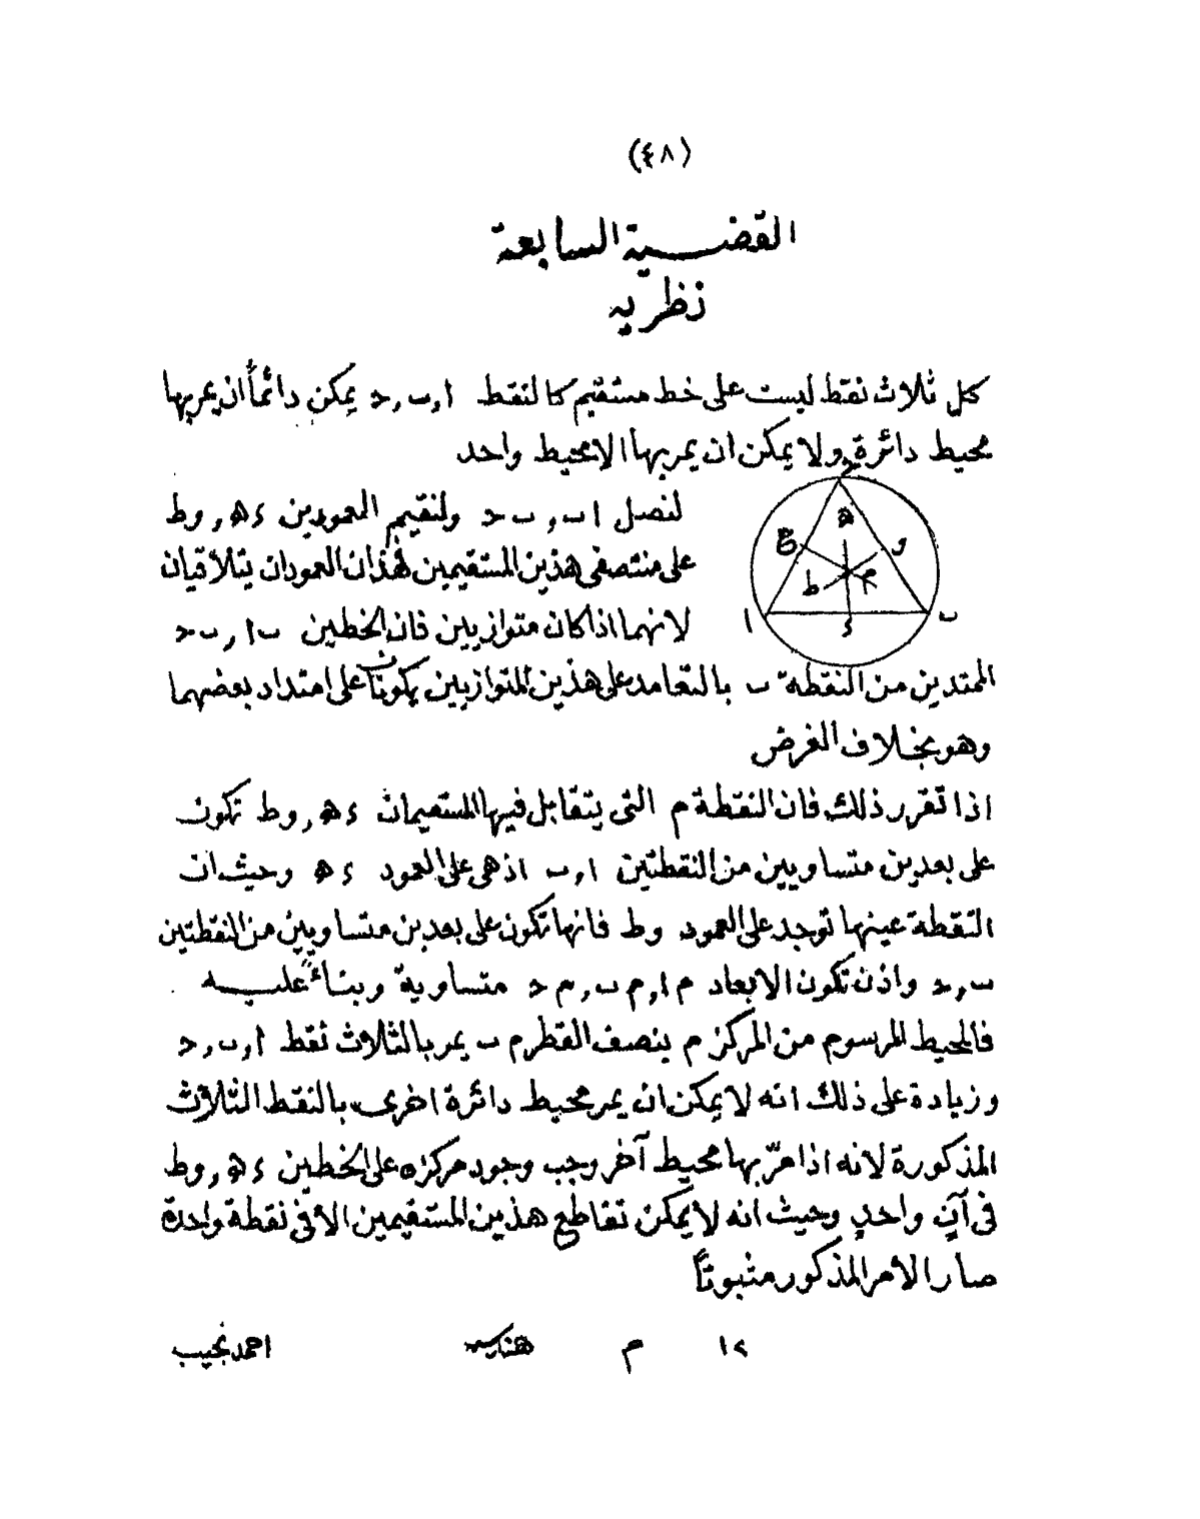 (٤٨)
القضية السابعة
نظريه
كل ثلاث نقط ليست على خط مستقيم كالنقط ا , ب , ح يمكن دائماً ان يمر بها
محيط دائرة ولا يمكن ان يمر بها الا محيط واحد
لنصل ا ب , ب ح ولنقيم العمودين ء ه , و ط
على منتصفى هذين المستقيمين فهذان العمودان يتلاقيان
لانهما اذا كان متوازيين فان الخطين ب ا , ب ح
الممتدين من النقطة ب بالتعامد على هذين المتوازيين يكونان على امتداد بعضهما
وهو بخلاف الفرض
ح
ه
ع
و
ط
م
ا
ء
ب
اذا تقرر ذلك فان النقطة م التى يتقابل فيها المستقيمان ء ه , و ط تكون
على بعدين متساويين من النقطتين ا , ب اذ هى على العمود ء ه وحيث ان
النقطة عينها توجد على العمود و ط فانها تكون على بعدين متساويين من النقطتين
ب , ح واذن تكون الابعاد م ا , م ب , م ح متساوية وبناءً عليه
فالمحيط المرسوم من المركز م بنصف القطر م ب يمر بالثلاث نقط ا , ب , ح
وزيادة على ذلك انه لا يمكن ان يمر محيط دائرة اخرى بالنقط الثلاث
المذكورة لانه اذا مرّ بها محيط آخر وجب وجود مركزه على الخطين ء ه , و ط
فى آنٍ واحدٍ وحيث انه لا يمكن تقاطع هذين المستقيمين الا فى نقطة واحدة
صار الامر المذكور مثبوتاً
١٢ م هندسه احمد نجيب